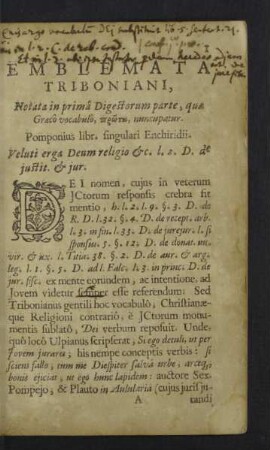 EMBLEMATA
TRIBONIANI,
Notata in primâ Digestorum parte, quæ
Græco vocabulô, nuncupatur.
Pomponius libr. singulari Enchiridii.
Veluti erga Deum religio &c. l. 2. D. de
justit. & jur.
DEI nomen, cujus in veterum
JCtorum responsis crebra fit
mentio, h. l. 2. l. 9. §. 3. D. de
R. D. l. 32. §. 4. D. de recept. arb.
l. 3. in fin. l. 33. D. de jurejur. l. si
sponsus. 5. §. 12. D. de donat. inter
vir. & ux. l. Titia. 38. §. 2. D. de aur. & arg.
leg. l. 1. §. 5. D. ad l. Falc. l. 3. in princ. D. de
jur. fisc. ex mente eorundem, ac intentione, ad
Jovem videtur semper esse referendum: Sed
Tribonianus gentili hoc vocabulô, Christianæ-
que Religioni contrariô, è JCtorum monu-
mentis sublatô, Dei verbum reposuit. Unde,
quò locô Ulpianus scripserat, Si ego detuli, ut per
Jovem jurares; his nempe conceptis verbis: si
sciens fallo, tum me Diespiter salvâ urbe, arceq;
bonis ejiciat, ut ego hunc lapidem: auctore Sex.
Pompejo, & Plauto in Aulularia (cujus juris ju-
A
randi